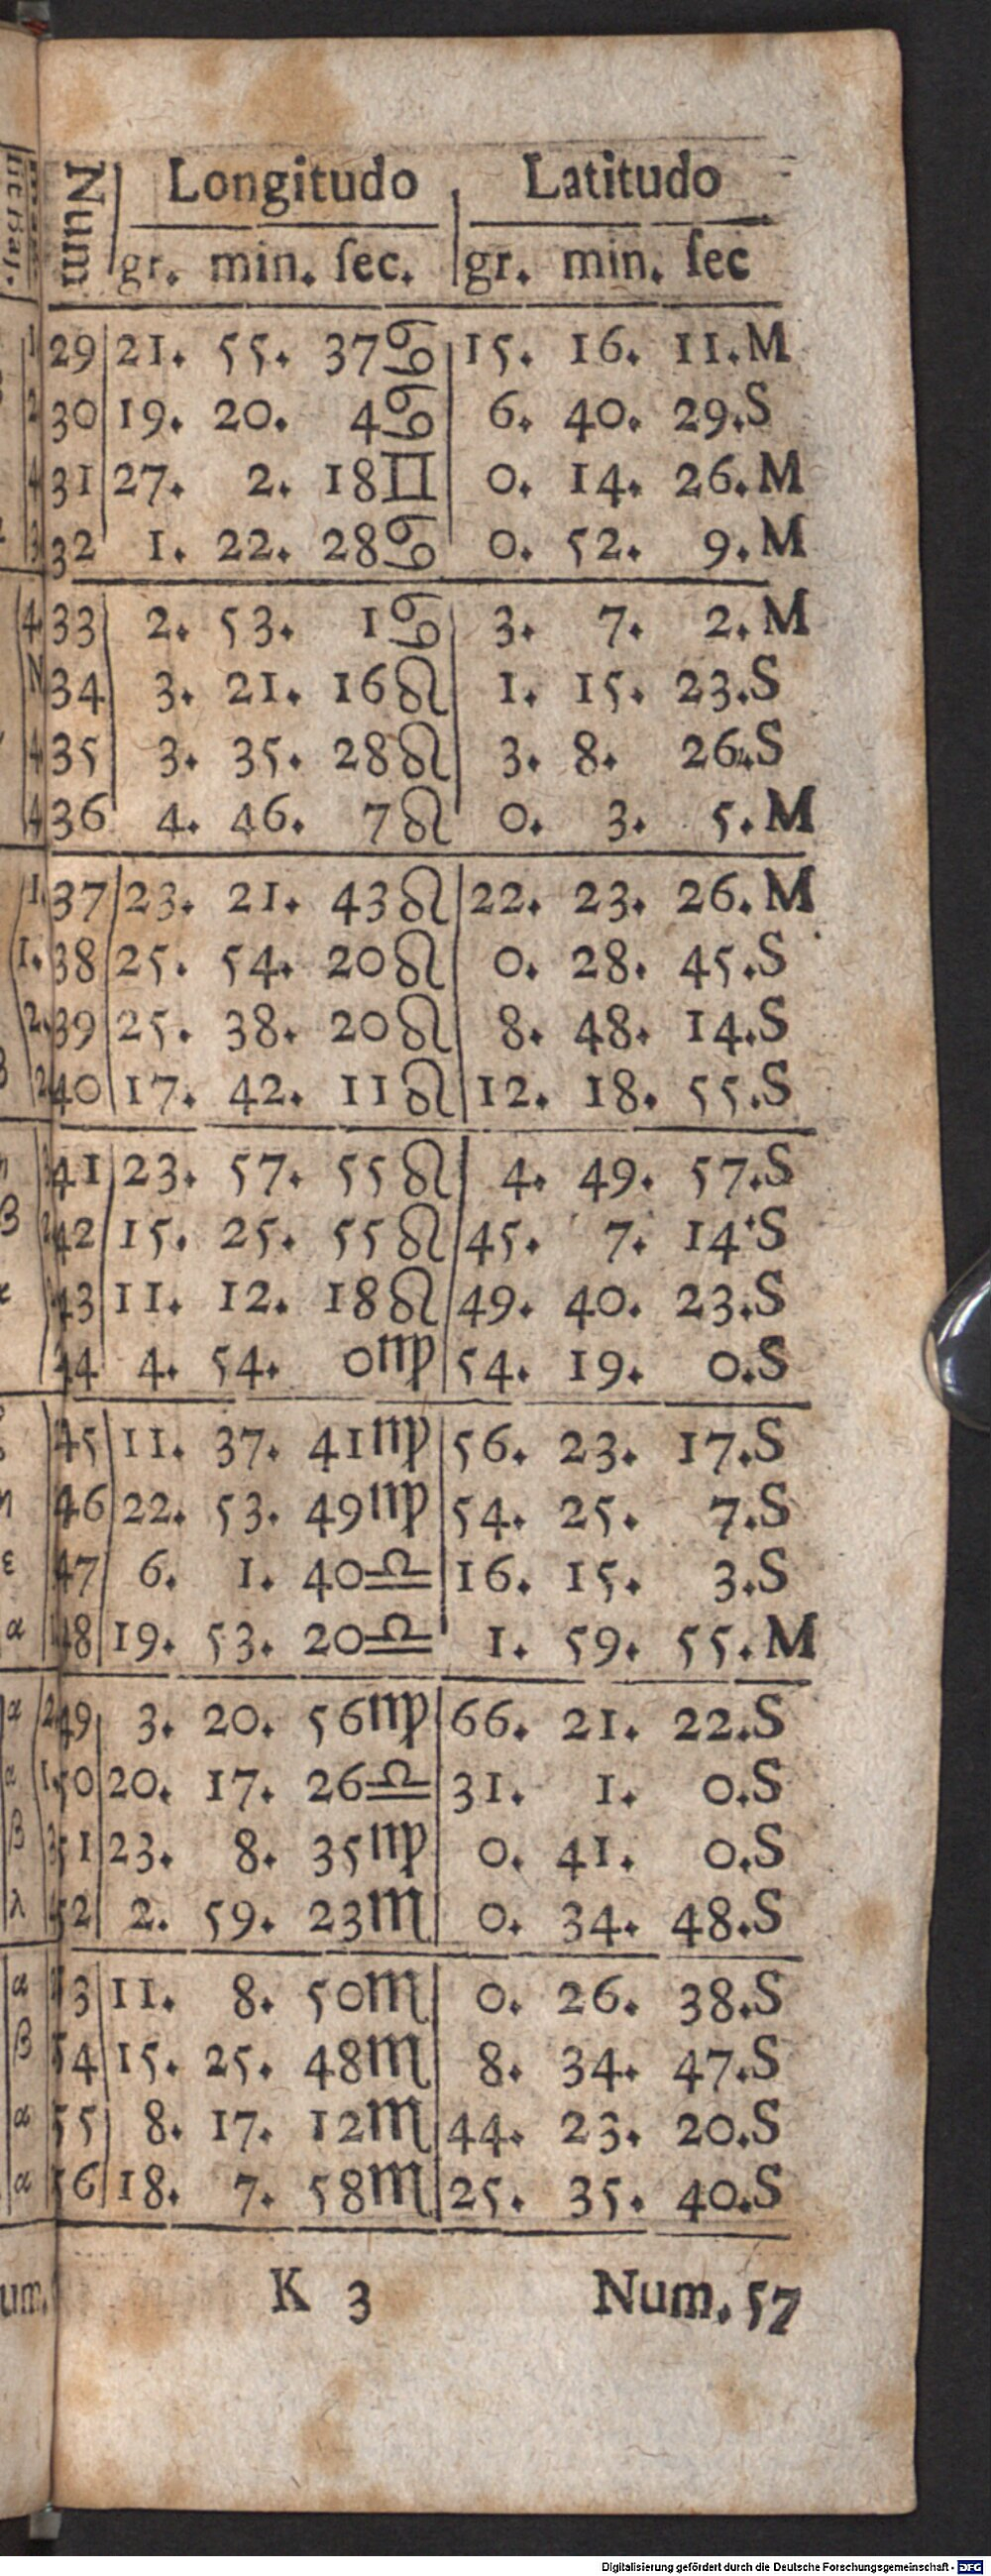 Num Longitudo Latitudo
gr. min. ſec. gr. min. ſec
29 21. 55. 37♋ 15. 16. 11.M
30 19. 20. 4♋ 6. 40. 29.S
31 27. 2. 18♊ 0. 14. 26.M
32 1. 22. 28♋ 0. 52. 9.M
33 2. 53. 1♋ 3. 7. 2.M
34 3. 21. 16♌ 1. 15. 23.S
35 3. 35. 28♌ 3. 8. 26.S
36 4. 46. 7♌ 0. 3. 5.M
37 23. 21. 43♌ 22. 23. 26.M
38 25. 54. 20♌ 0. 28. 45.S
39 25. 38. 20♌ 8. 48. 14.S
40 17. 42. 11♌ 12. 18. 55.S
41 23. 57. 55♌ 4. 49. 57.S
42 15. 25. 55♌ 45. 7. 14.S
43 11. 12. 18♌ 49. 40. 23.S
44 4. 54. 0♍ 54. 19. 0.S
45 11. 37. 41♍ 56. 23. 17.S
46 22. 53. 49♍ 54. 25. 7.S
47 6. 1. 40♎ 16. 15. 3.S
48 19. 53. 20♎ 1. 59. 55.M
49 3. 20. 56♍ 66. 21. 22.S
50 20. 17. 26♎ 31. 1. 0.S
51 23. 8. 35♍ 0. 41. 0.S
52 2. 59. 23♏ 0. 34. 48.S
53 11. 8. 50♏ 0. 26. 38.S
54 15. 25. 48♏ 8. 34. 47.S
55 8. 17. 12♏ 44. 23. 20.S
56 18. 7. 58♏ 25. 35. 40.S
K 3 Num. 57
Digitalisierung gefördert durch die Deutsche Forschungsgemeinschaft - DFG